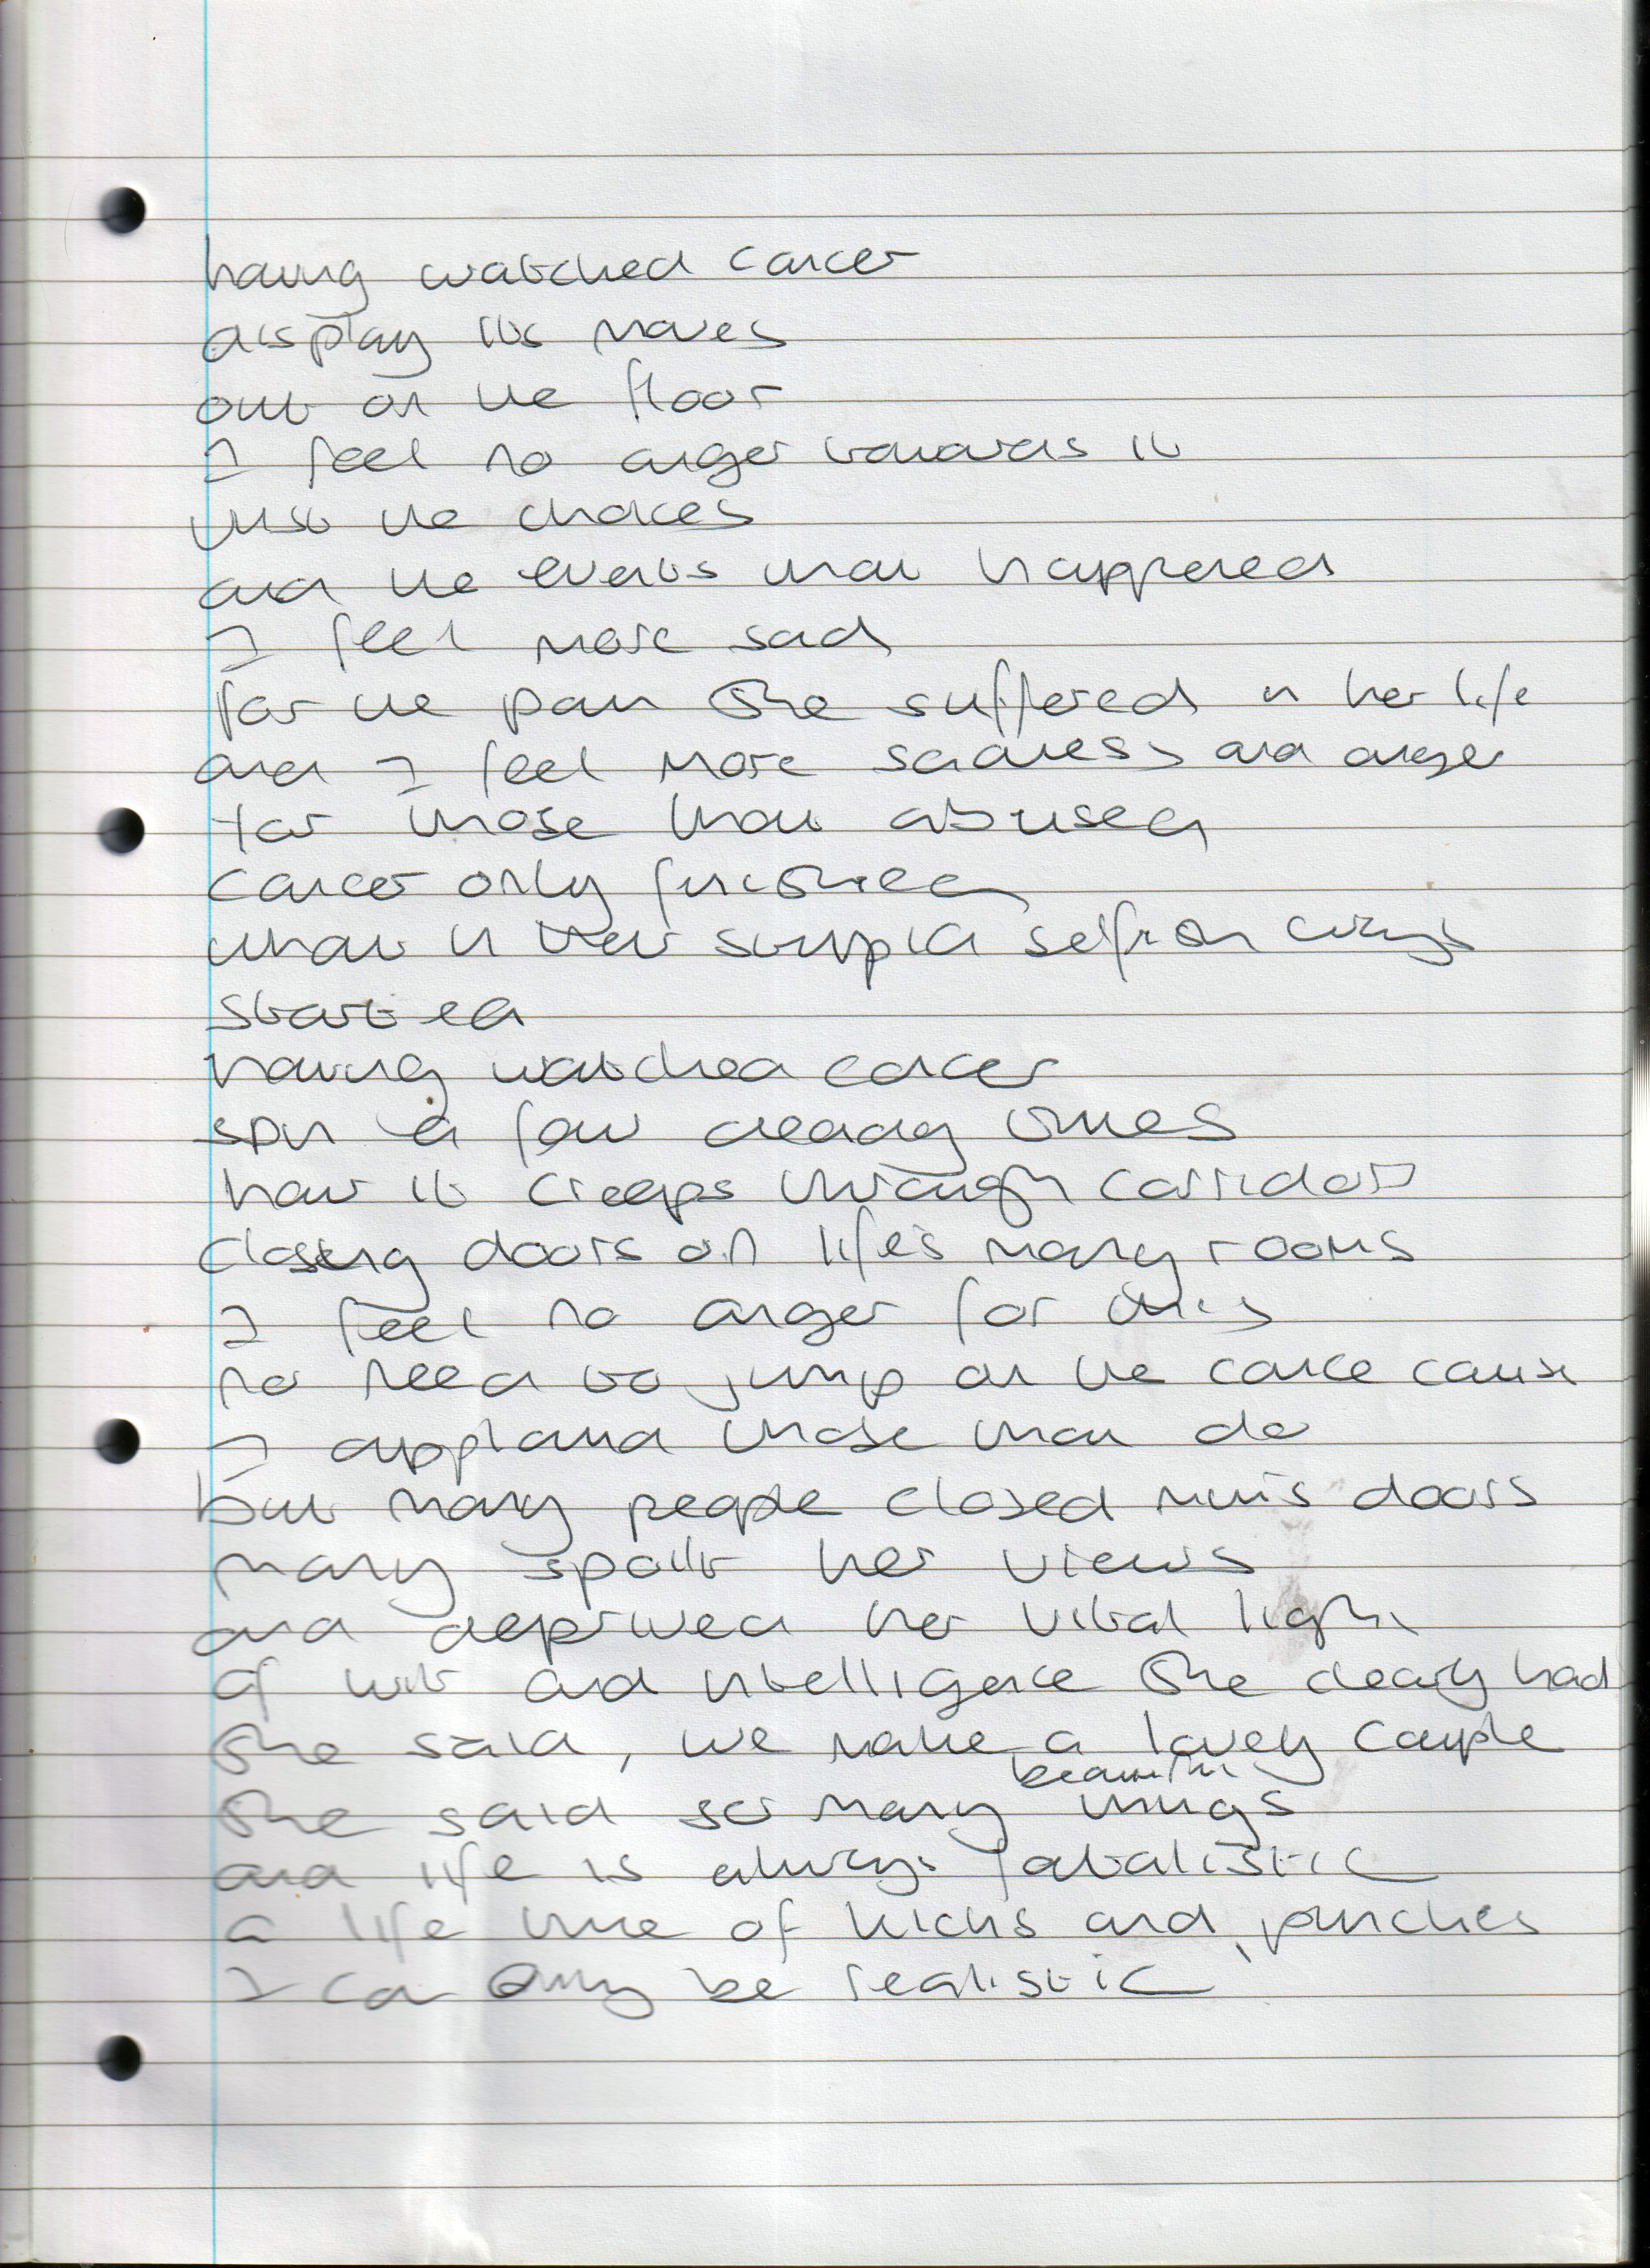 having watched cancer
display its moves
out on the floor
I feel no anger towards it
just the choices
and the events that happened
I feel more sad
for the pain she suffered in her life
and I feel more sadness and anger
for those that abused
cancer only finished
what in their stupid selfish ways
started
having watched cancer
spin a few deadly times
how it creeps through corridors
closing doors on life's many rooms
I feel no anger for this
no need to jump on the cancer cause
I applaud those that do
but many people closed mum's doors
many spoilt her views
and deprived her vital light
of wit and intelligence she clearly had
she said, we make a lovely couple
she said so many beautiful things
and life is always fatalistic
a life time of kicks and punches
I can only be realistic